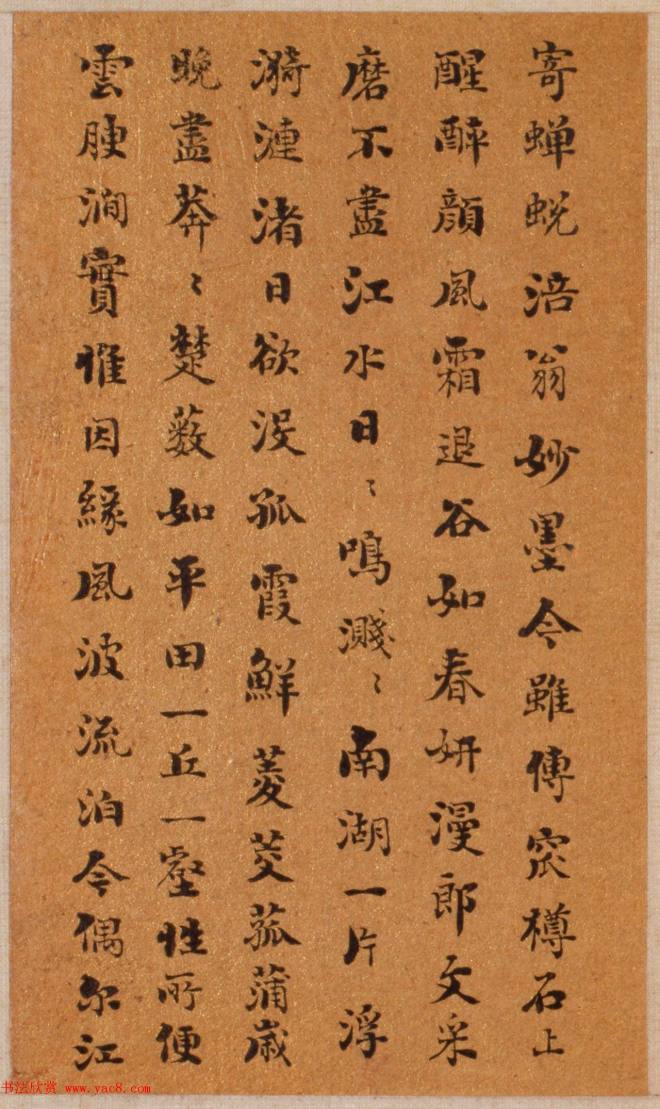 寄蟬蛻涪翁妙墨今雖傳窊樽石上
醒醉顔風霜退谷如春妍漫郎文采
磨不盡江水日〻鳴濺〻南湖一片浮
漪漣渚日欲没孤霞鮮菱芡菰蒲歲
晚盡莽〻楚藪如平田一丘一壑性所便
雲腴澗實惟因緣風波流泊今偶尔江
书法欣赏 www.yac8.com